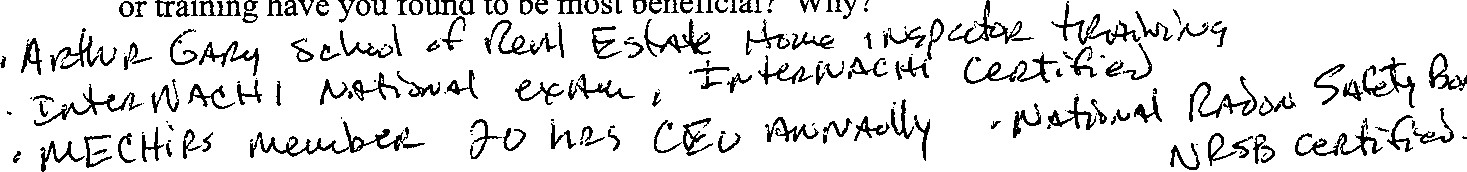 or training have you found to be most beneficial? Why?
· Arthur Gary School of Real Estate Home inspector training
· InterNACHI National exam, InterNACHI Certified
· MECHIPS member 20 hrs CEU Annually · National Radon Safety Boa
NRSB Certified.